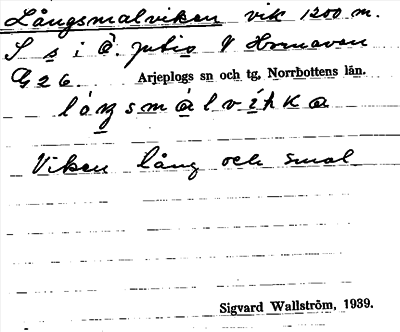 Långsmalviken vik 1200 m.
S s i Hornavan
G 26. Arjeplogs sn och tg, Norrbottens län.
Viken lång och smal
Sigvard Wallström, 1939.